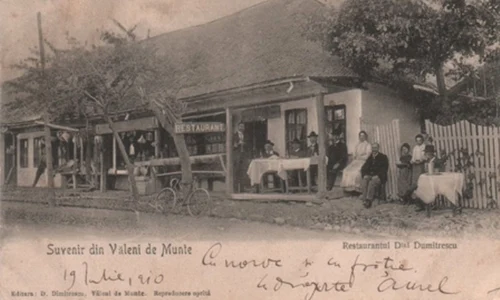 RESTAURANT
Suvenir din Văleni de Munte
Restaurantul D-lui Dumitrescu
Editura: D. Dimitrescu, Vălenii de Munte. Reproducerea oprită
19 Iulie, 910
Cu noroc și cu frăție.
Aurel